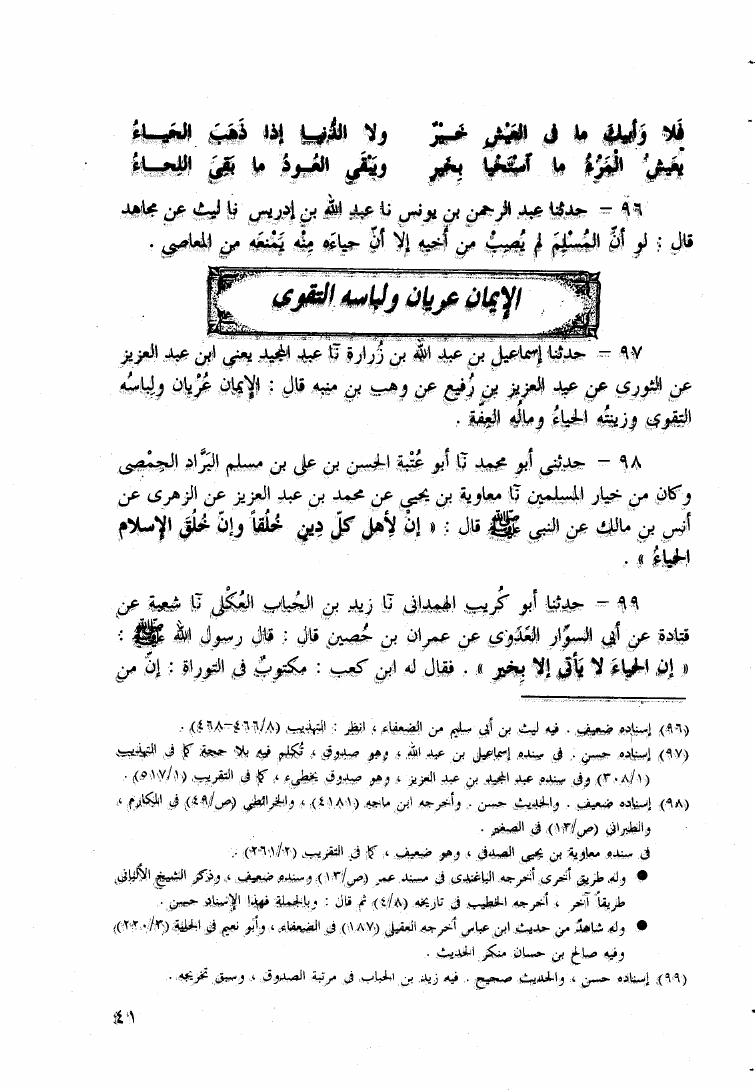 فَلا وَأَبِيكَ ما فى العَيْشِ خَـيْرٌ ولا الدُّنْيـا إذا ذَهَبَ الحَيـاءُ
يَعِيشُ المَرْءُ ما اسْتَحْيَا بِخَيرٍ ويَبْقَى العُـودُ ما بَقِىَ اللحـاءُ
٩٦ – حدثنا عبد الرحمن بن يونس نا عبد الله بن إدريس نا ليث عن مجاهد
قال : لو أنَّ المُسْلِمَ لم يُصِبْ من أخيه إلا أنَّ حياءَه مِنْه يَمْنعَه من المعاصى .
الإيمان عريان ولباسه التقوى
٩٧ – حدثنا إسماعيل بن عبد الله بن زُرارة نَا عبد المجيد يعنى ابن عبد العزيز
عن الثورى عن عبد العزيز بن رُفيع عن وهب بن منبه قال : الإيمان عُرْيان ولِباسُه
التقوى وزينتُه الحياءُ ومالُه العِفَّة .
٩٨ – حدثنى أبو محمد نَا أبو عُتْبة الحسن بن على بن مسلم البَرَّاد الحِمْصِى
وكان من خيار المسلمين نَا معاوية بن يحيى عن محمد بن عبد العزيز عن الزهرى عن
أنس بن مالك عن النبى ﷺ قال : « إنّ لأهل كلِّ دِينٍ خُلُقاً وإنّ خُلُقَ الإسلام
الحياءُ » .
٩٩ – حدثنا أبو كُريب الهمدانى نَا زيد بن الحُباب العُكْلى نَا شعبة عن
قتادة عن أبى السوَّار العَدَوى عن عمران بن حُصين قال : قال رسول الله ﷺ :
« إن الحياءَ لا يَأتى إلا بِخير » . فقال له ابن كعب : مكتوبٌ فى التوراة : إنَّ من
(٩٦) إسناده ضعيف . فيه ليث بن أبى سليم من الضعفاء ، انظر : التهذيب (٤٦٦/٨–٤٦٨) .
(٩٧) إسناده حسن . فى سنده إسماعيل بن عبد الله ، وهو صدوق ، تُكلم فيه بلا حجة كما فى التهذيب
(٣٠٨/١) وفى سنده عبد المجيد بن عبد العزيز ، وهو صدوق يخطىء ، كما فى التقريب (٥١٧/١) .
(٩٨) إسناده ضعيف . والحديث حسن . وأخرجه ابن ماجه (٤١٨١) ، والخرائطى (ص/٤٩) فى المكارم ،
والطبرانى (ص/١٣) فى الصغير .
فى سنده معاوية بن يحيى الصدفى ، وهو ضعيف ، كما فى التقريب (٢٦١/٢) .
● وله طريق أخرى أخرجه الباغندى فى مسند عمر (ص/١٣) وسنده ضعيف ، وذكر الشيخ الألبانى
طريقاً آخر ، أخرجه الخطيب فى تاريخه (٤/٨) ثم قال : وبالجملة فهذا الإسناد حسن .
● وله شاهدٌ من حديث ابن عباس أخرجه العقيلى (١٨٧) فى الضعفاء ، وأبو نعيم فى الحلية (٢٢٠/٣)
وفيه صالح بن حسان منكر الحديث .
(٩٩) إسناده حسن ، والحديث صحيح . فيه زيد بن الحباب فى مرتبة الصدوق ، وسبق تخريجه .
٤١